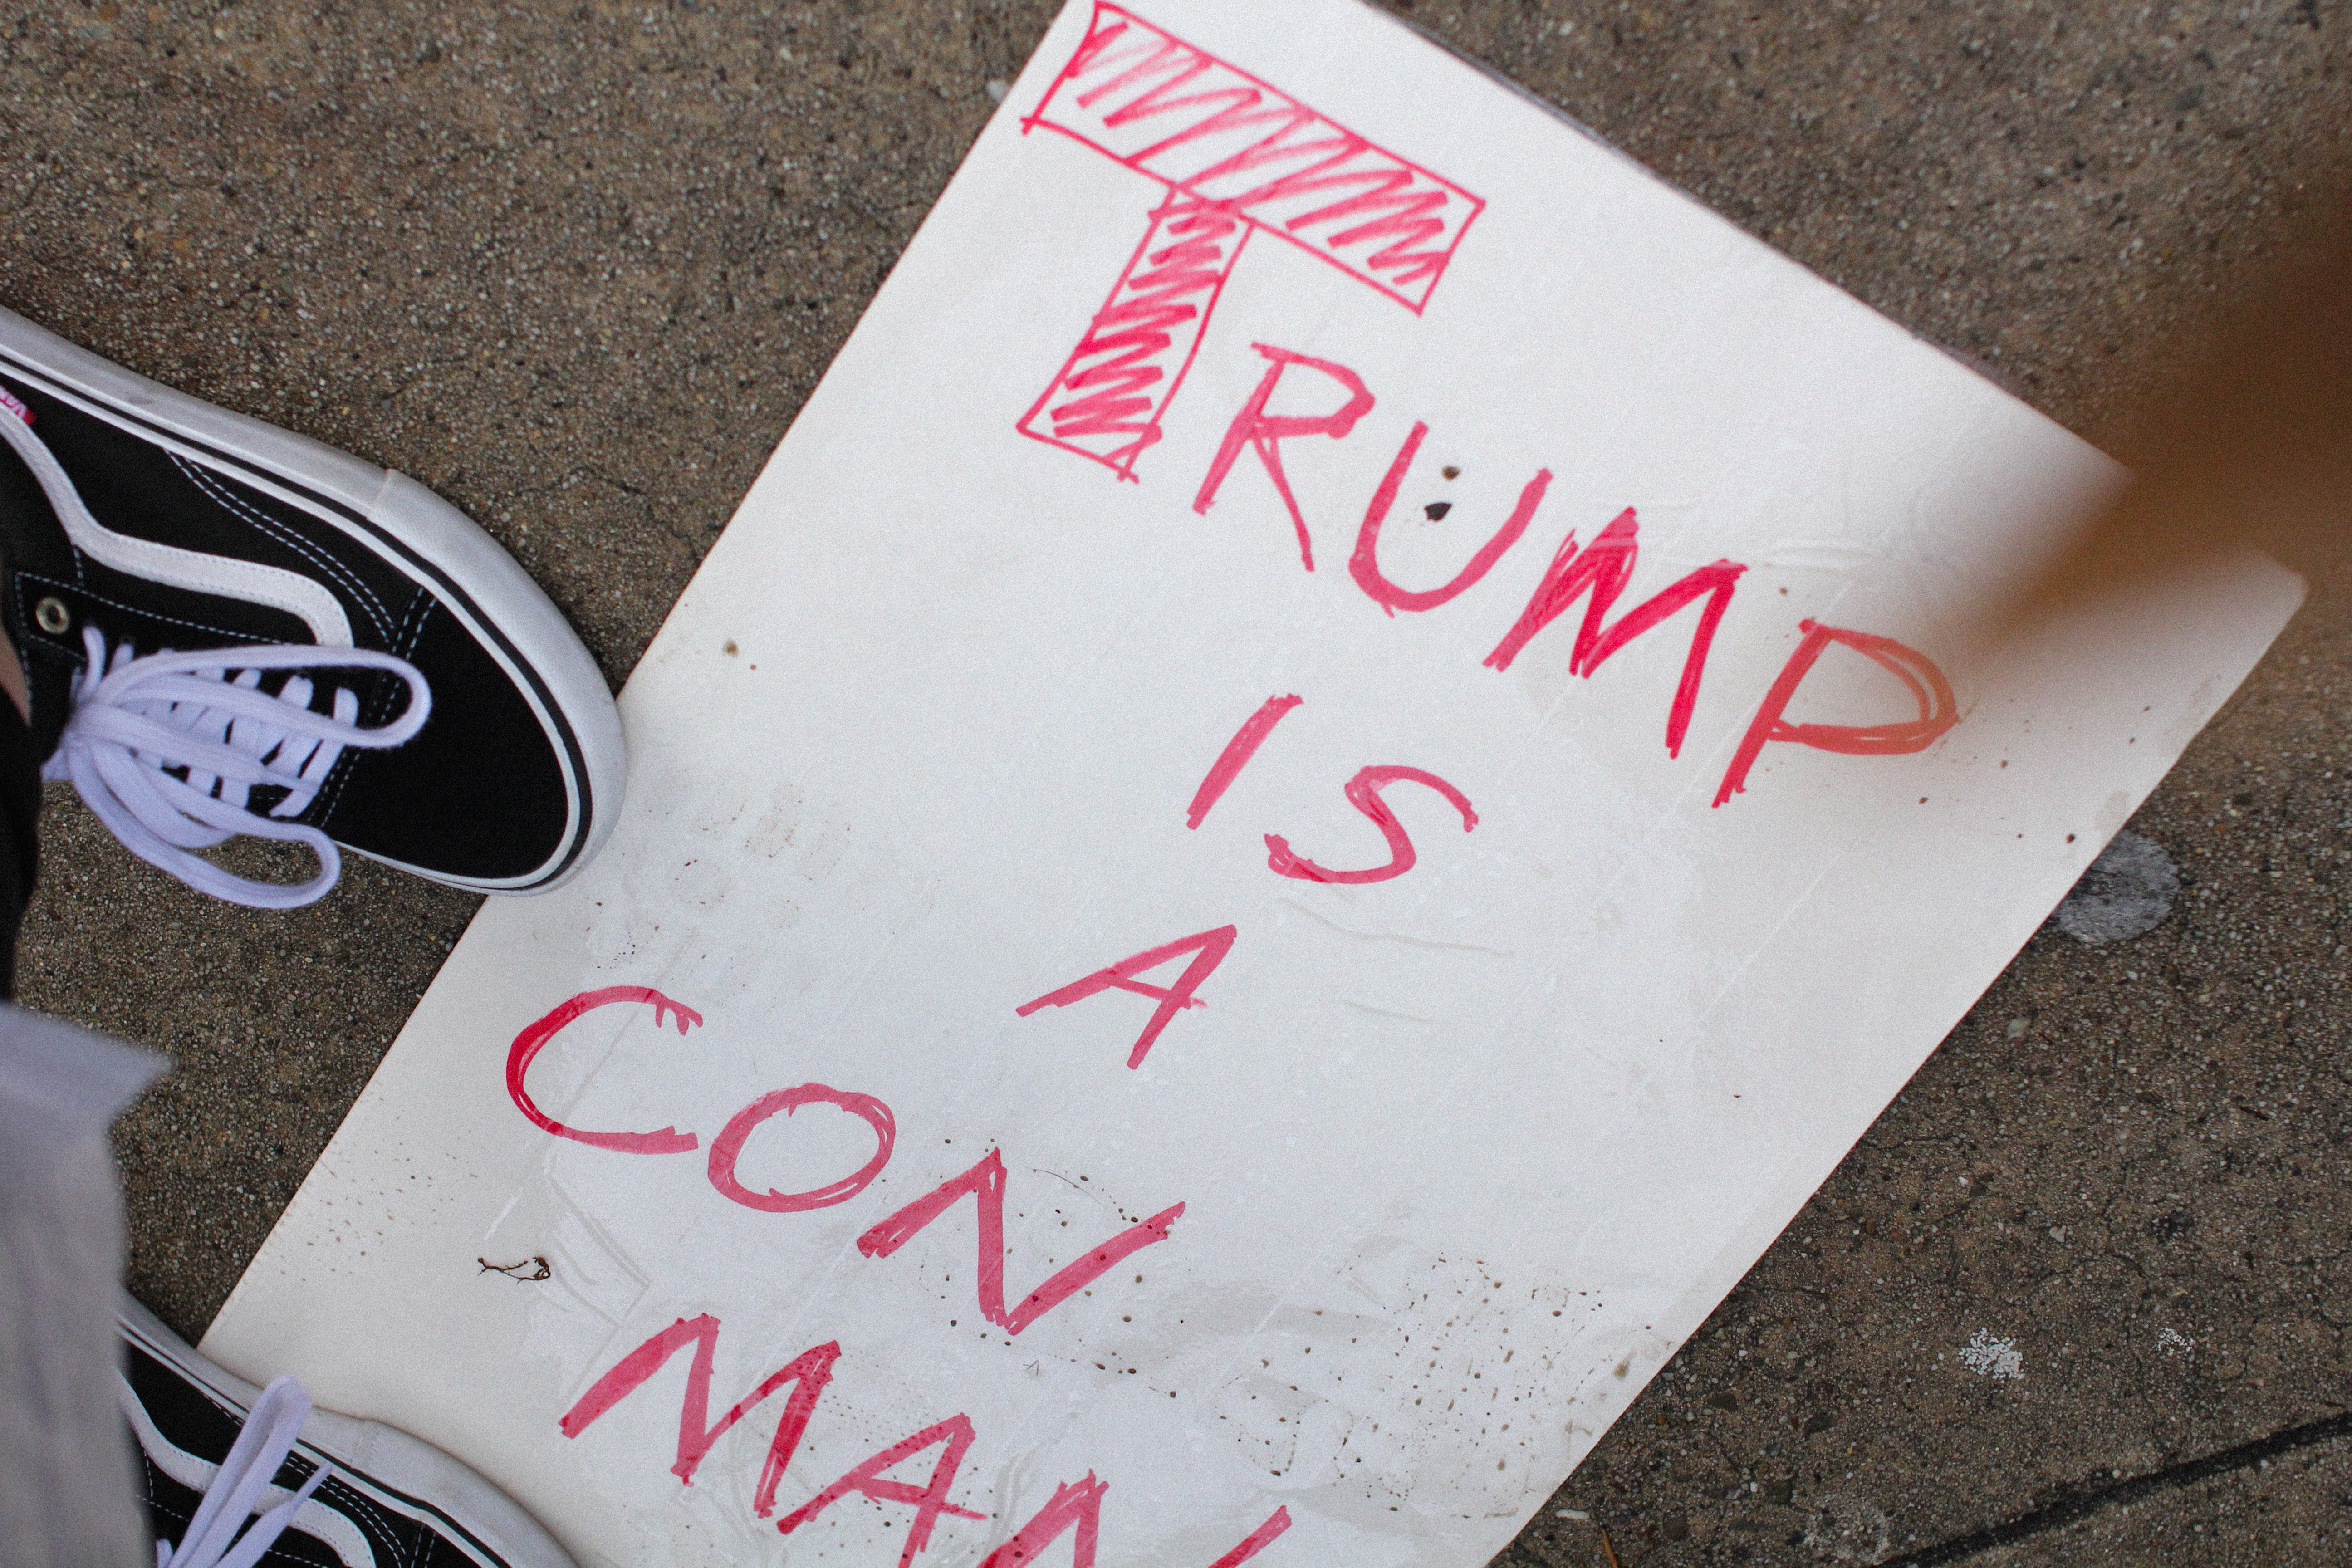 TRUMP
IS
A
CON
MAN